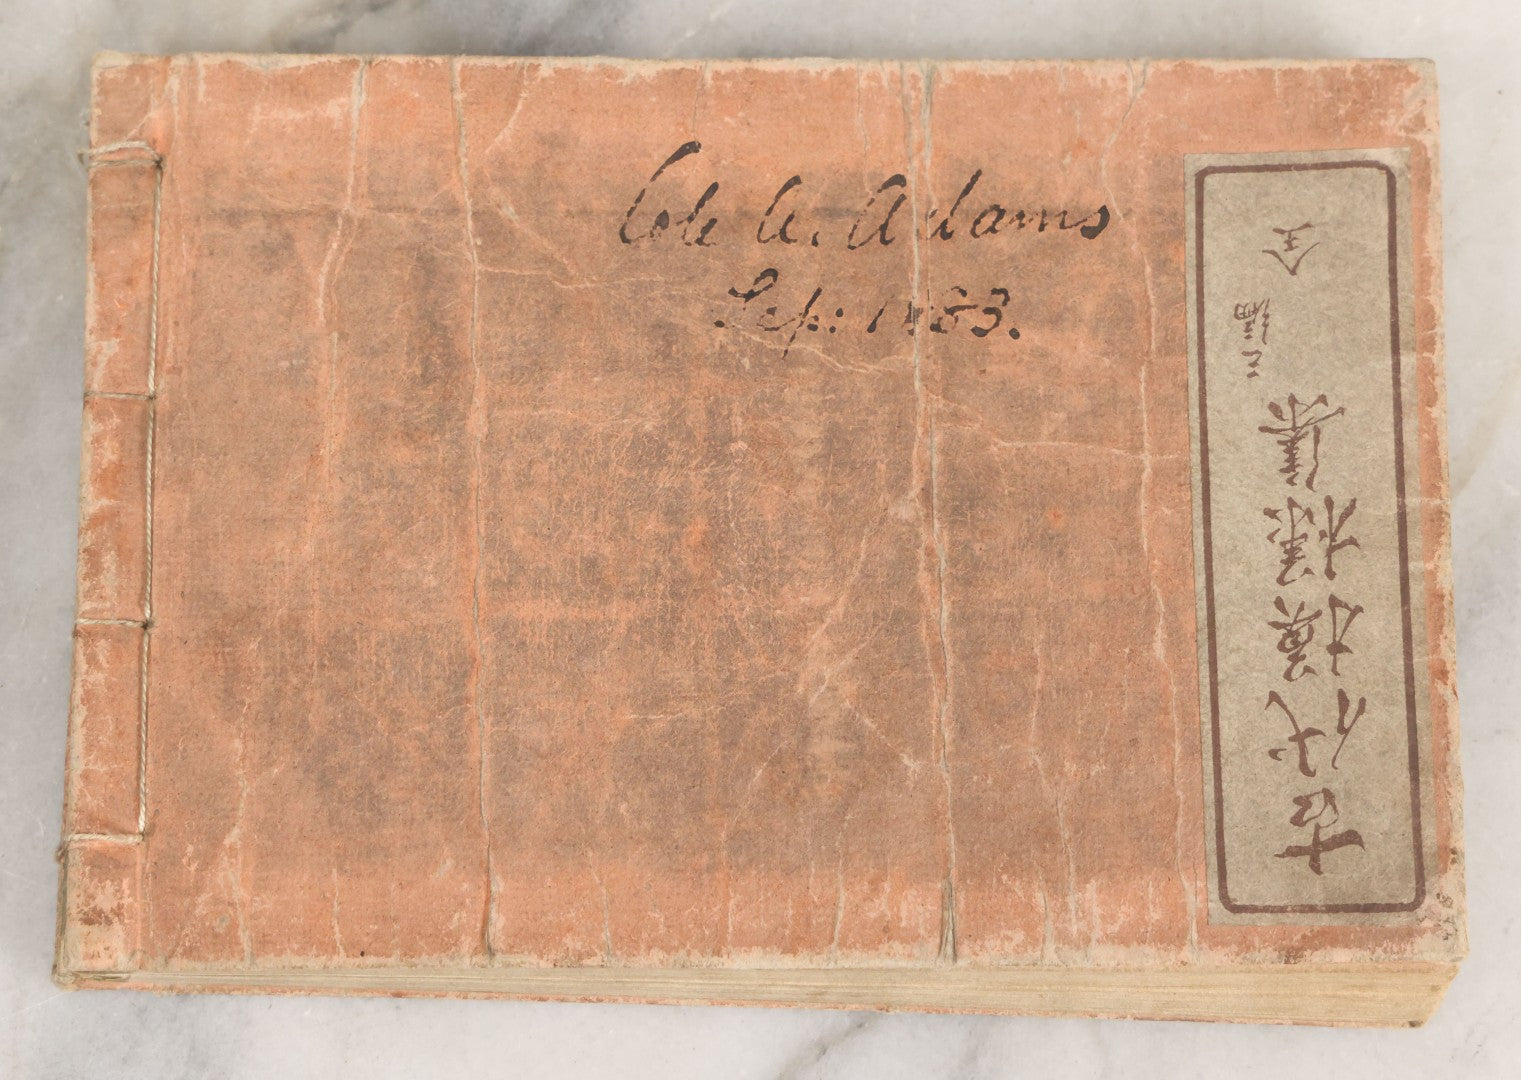 Cole A. Adams
Sep: 1883.
古代模様集 二編 全